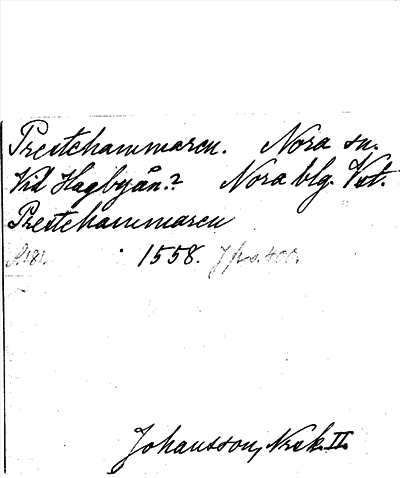 Prestehammaren. Nora sn.
Vid Hagbyån.? Nora blg. Vst.
Prestehammaren
1558.
Johansson, Norsk. II.